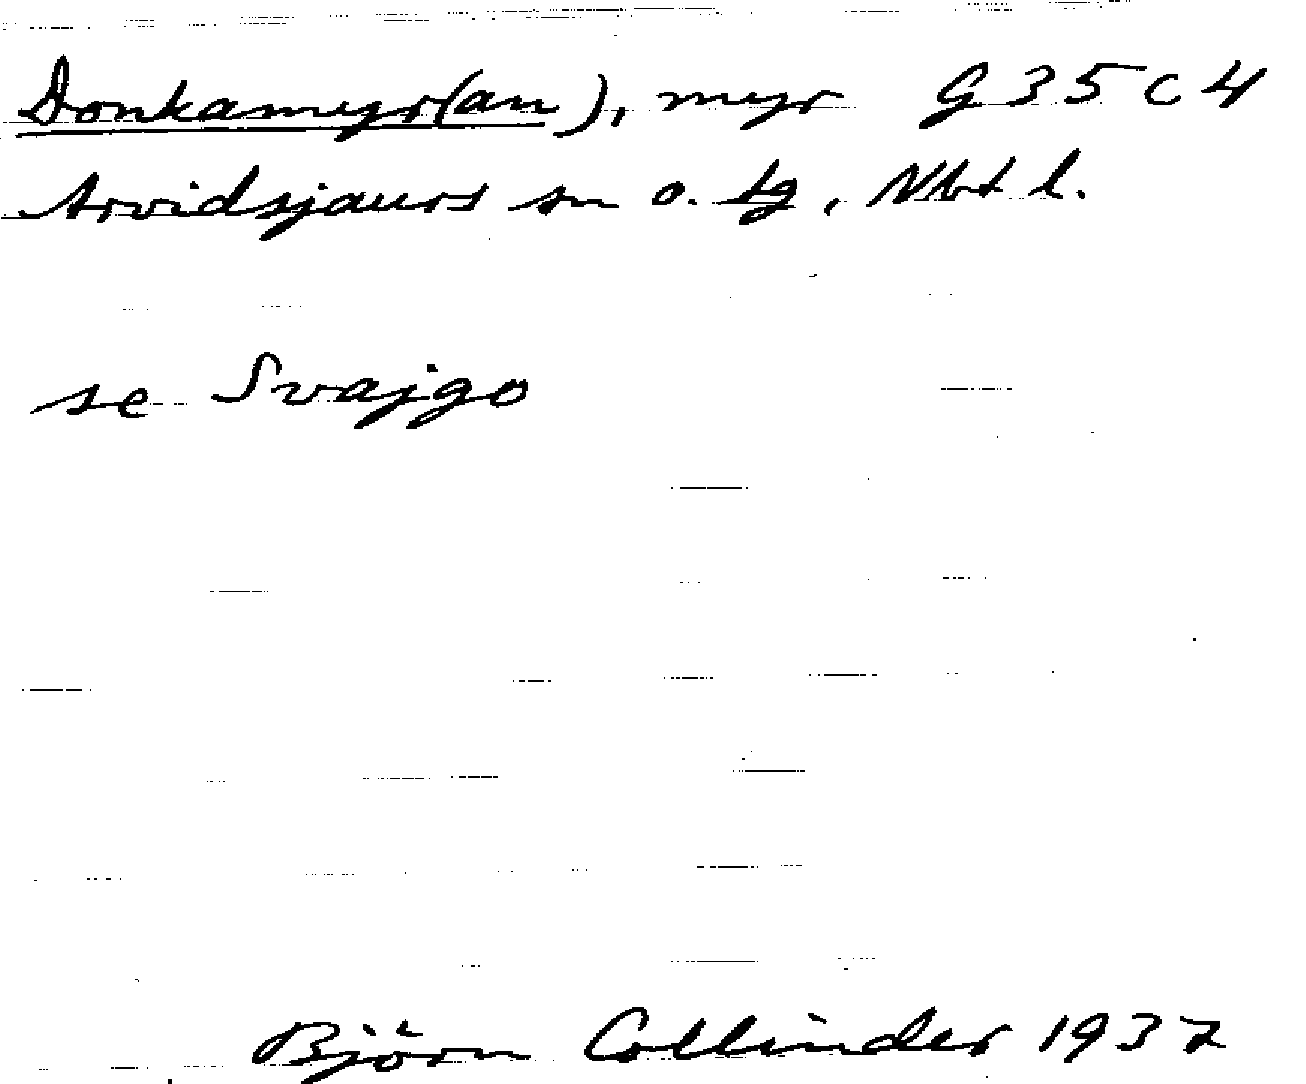 Donkamyr(an), myr G 35 c 4
Arvidsjaurs sn o. tg, Nbt l.
se Svajgo
Björn Collinder 1937